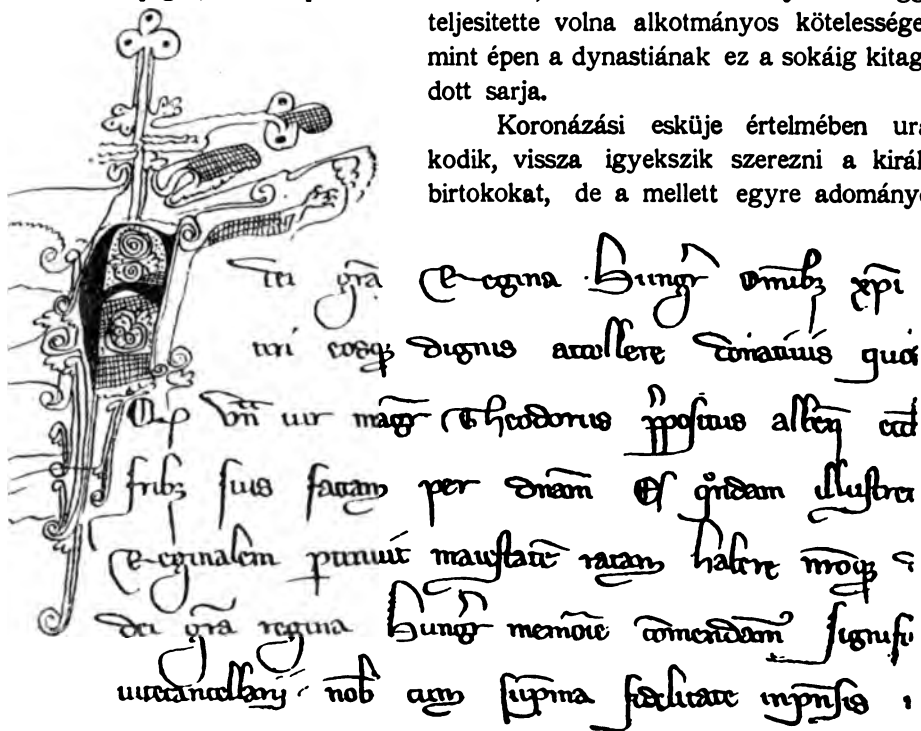 teljesitette volna alkotmányos kötelessége
mint épen a dynastiának ez a sokáig kitag
dott sarja.
Koronázási esküje értelmében ura
kodik, vissza igyekszik szerezni a királ
birtokokat, de a mellett egyre adomány
dei gr̄a Regina Hungr̄ om̄ib; xp̄i
turi eosq; dignis attollere
vir magr̄ Theodorus p̄positus
frib; suis factam per dnām illustrei
Reginalem petiuit maiestatē ratam habere
dei gr̄a regina Hungr̄ memōie cōmendam̄ signifi
uicecancellarij nob̄ cum sūpma fidelitate inpn̄sis